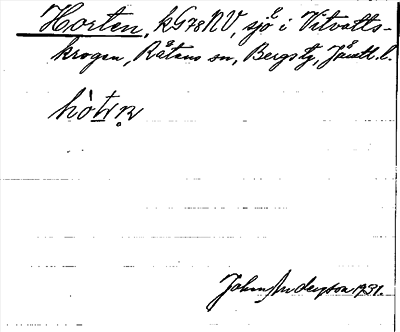 Horten, kG78NV, sjö i Vitvatts-
krogen, Råtans sn, Bergstg, Jämtl. l.
hòtṇ
John Anderson 1931.